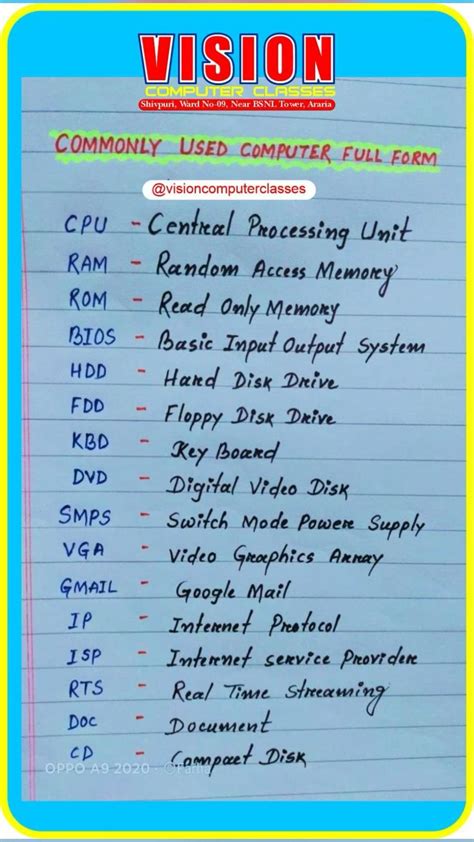 VISION
COMPUTER CLASSES
Shivpuri, Ward No-09, Near BSNL Tower, Araria
COMMONLY USED COMPUTER FULL FORM
@visioncomputerclasses
CPU - Central Processing Unit
RAM - Random Access Memory
ROM - Read Only Memory
BIOS - Basic Input Output System
HDD - Hard Disk Drive
FDD - Floppy Disk Drive
KBD - Key Board
DVD - Digital Video Disk
SMPS - Switch Mode Power Supply
VGA - Video Graphics Array
GMAIL - Google Mail
IP - Internet Protocol
ISP - Internet service Provider
RTS - Real Time Streaming
DOC - Document
CD - Compact Disk
OPPO A9 2020